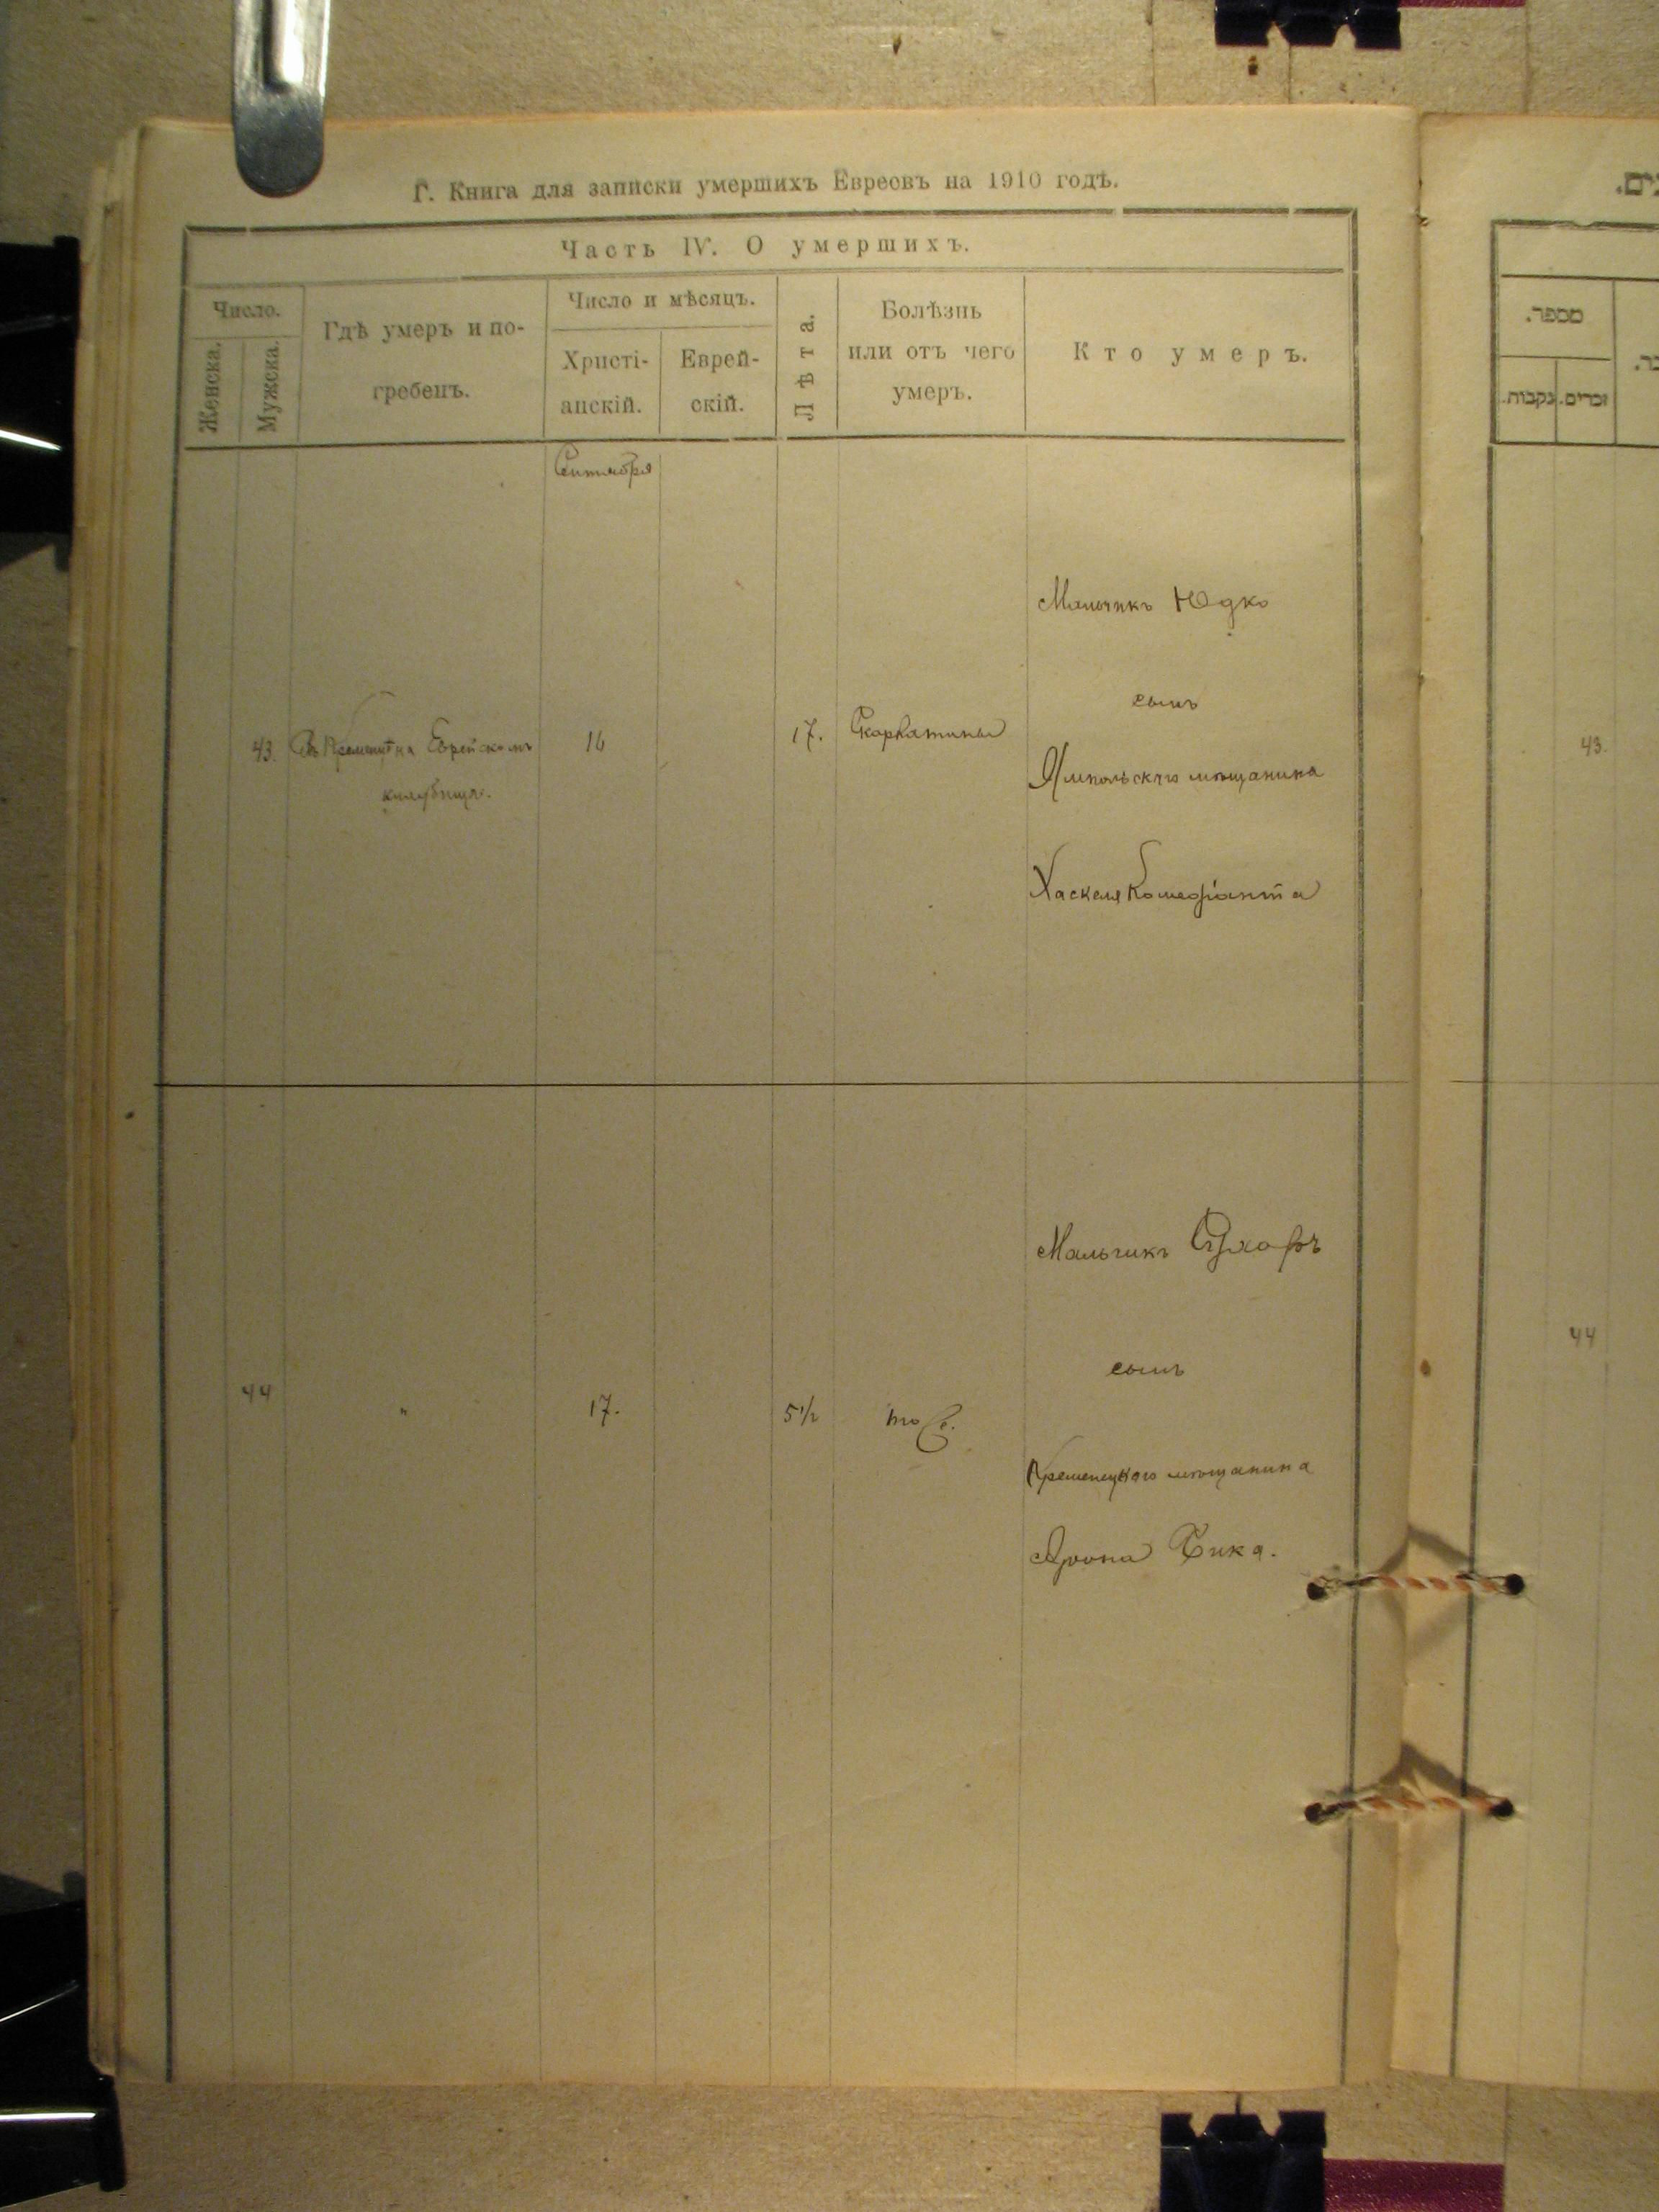 Г. Книга для записки умершихъ Евреевъ на 1910 годъ.
Часть IV. О умершихъ.
Число.
Женска.
Мужска.
Гдѣ умеръ и по-
гребенъ.
Число и мѣсяцъ.
Христі-
анскій.
Еврей-
скій.
Лѣта.
Болѣзнь
или отъ чего
умеръ.
Кто умеръ.
Сентября
Мальчикъ Юдко
сынъ
43.
на Еврейскомъ
16
17.
Скарлатины
Ямпольскаго мѣщанина
Хаскеля Комедіанта
Мальчикъ
сынъ
44
"
17.
5½
Кременецкаго мѣщанина
Арона
מספר.
זכרים.
נקבות.
43.
44